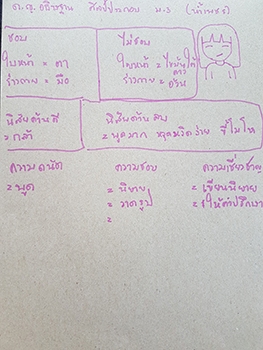 ด.ญ. อธิษฐาน ม.3
ชอบ
ใบหน้า = ตา
ร่างกาย = มือ
ไม่ชอบ
ใบหน้า = ใต้ตา
ร่างกาย = อ้วน
นิสัยด้านดี
= กล้า
นิสัยด้านลบ
= พูดมาก หงุดหงิดง่าย ขี้โมโห
ความถนัด
= พูด
ความชอบ
= นิยาย
= วาดรูป
=
ความเชี่ยวชาญ
= เขียนนิยาย
= ให้คำปรึกษา